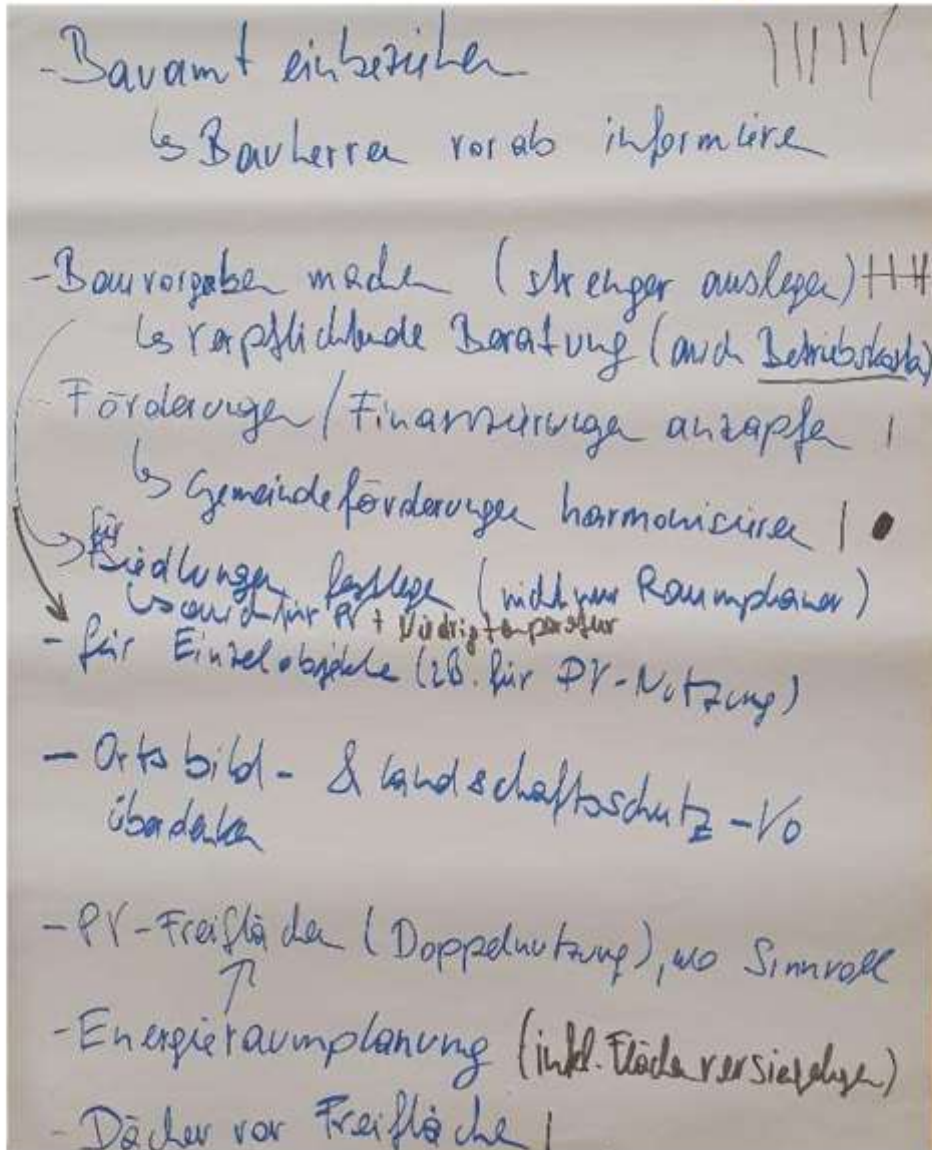 - Bauamt einbeziehen
↳ Bauherren vorab informieren
- Bauvorgaben machen (strenger auslegen)
↳ verpflichtende Beratung (auch Betriebskosten)
- Förderungen / Finanzierungen anzapfen
↳ Gemeindeförderungen harmonisieren
→ für Siedlungen festlegen (nicht nur Raumplaner)
↳ auch für PV + Niedrigtemperatur
- für Einzelobjekte (zB. für PV-Nutzung)
- Ortsbild- & Landschaftsschutz-VO
überdenken
- PV-Freiflächen (Doppelnutzung), wo Sinnvoll
- Energieraumplanung (inkl. Flächenversiegelungen)
- Dächer vor Freifläche